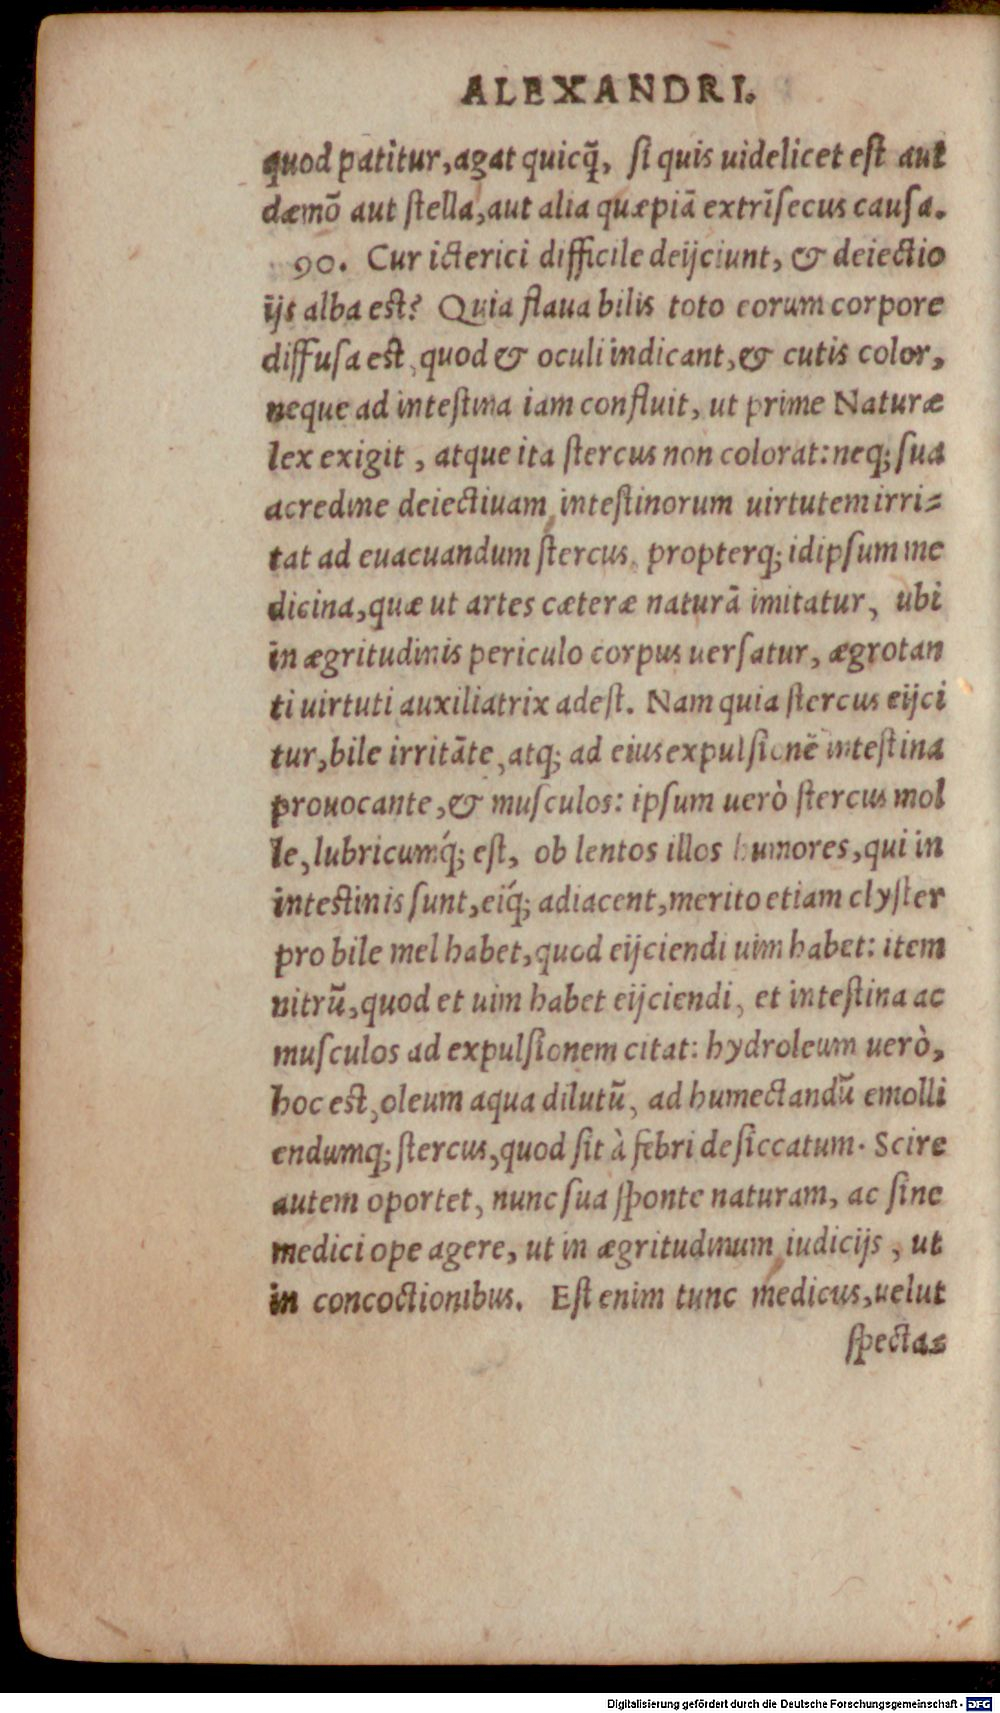 ALEXANDRI.
quod patitur, agat quicq̃, si quis uidelicet est aut
dæmõ aut stella, aut alia quæpiã extrĩsecus causa.
90. Cur icterici difficile deijciunt, & deiectio
ijs alba est? Quia flaua bilis toto eorum corpore
diffusa est, quod & oculi indicant, & cutis color,
neque ad intestina iam confluit, ut prime Naturæ
lex exigit, atque ita stercus non colorat: neq; sua
acredine deiectiuam intestinorum uirtutem irri=
tat ad euacuandum stercus, propterq; idipsum me
dicina, quæ ut artes cæteræ naturã imitatur, ubi
in ægritudinis periculo corpus uersatur, ægrotan
ti uirtuti auxiliatrix adest. Nam quia stercus eijci
tur, bile irritãte, atq; ad eius expulsionẽ intestina
prouocante, & musculos: ipsum uerò stercus mol
le, lubricumq́; est, ob lentos illos humores, qui in
intestinis sunt, eiq́; adiacent, merito etiam clyster
pro bile mel habet, quod eijciendi uim habet: item
nitrũ, quod et uim habet eijciendi, et intestina ac
musculos ad expulsionem citat: hydroleum uerò,
hoc est, oleum aqua dilutũ, ad humectandũ emolli
endumq; stercus, quod sit à febri desiccatum. Scire
autem oportet, nunc sua sponte naturam, ac sine
medici ope agere, ut in ægritudinum iudicijs, ut
in concoctionibus. Est enim tunc medicus, uelut
spectas
Digitalisierung gefördert durch die Deutsche Forschungsgemeinschaft - DFG